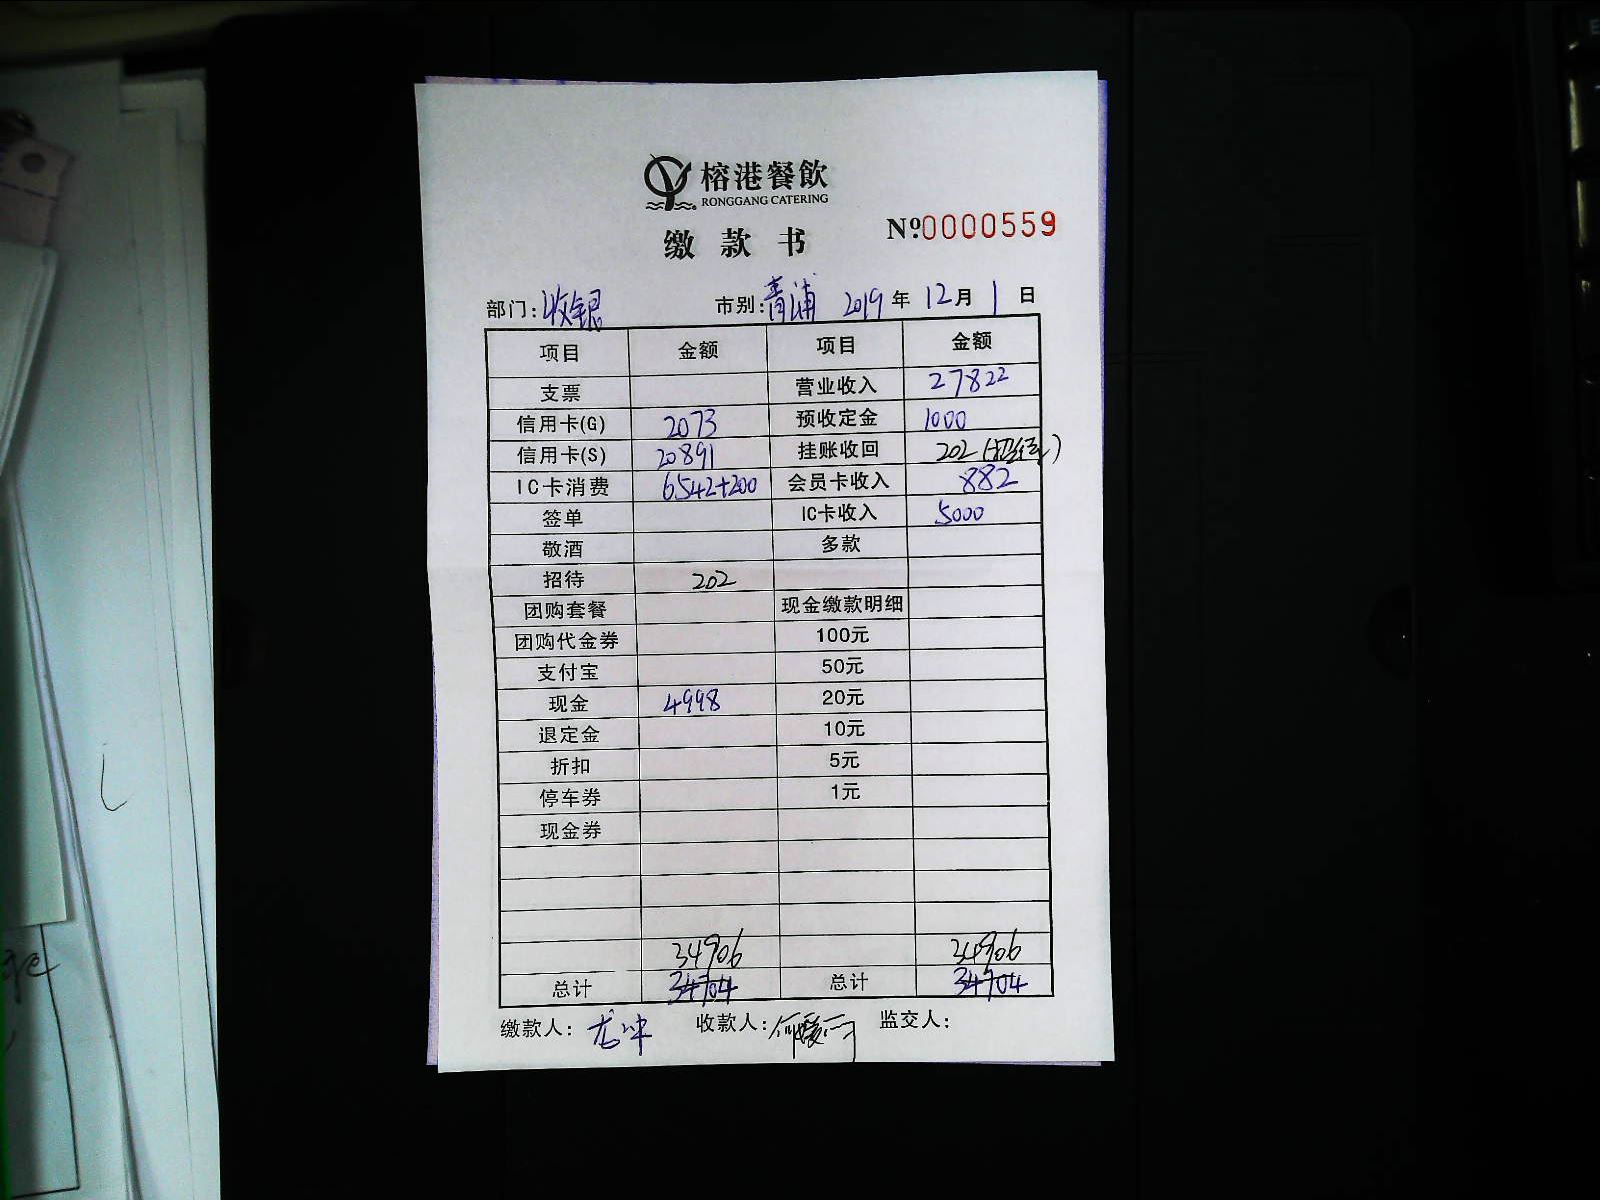 榕港餐飲
RONGGANG CATERING
缴款书
Nº0000559
部门:收银 市别:青浦 2019年12月1日
项目 金额 项目 金额
支票 营业收入 27822
信用卡(G) 2073 预收定金 1000
信用卡(S) 20891 挂账收回 202
IC卡消费 6542+200 会员卡收入 882
签单 IC卡收入 5000
敬酒 多款
招待 202
团购套餐 现金缴款明细
团购代金券 100元
支付宝 50元
现金 4998 20元
退定金 10元
折扣 5元
停车券 1元
现金券
34906 34906
总计 34704 总计 34704
缴款人: 收款人: 监交人: